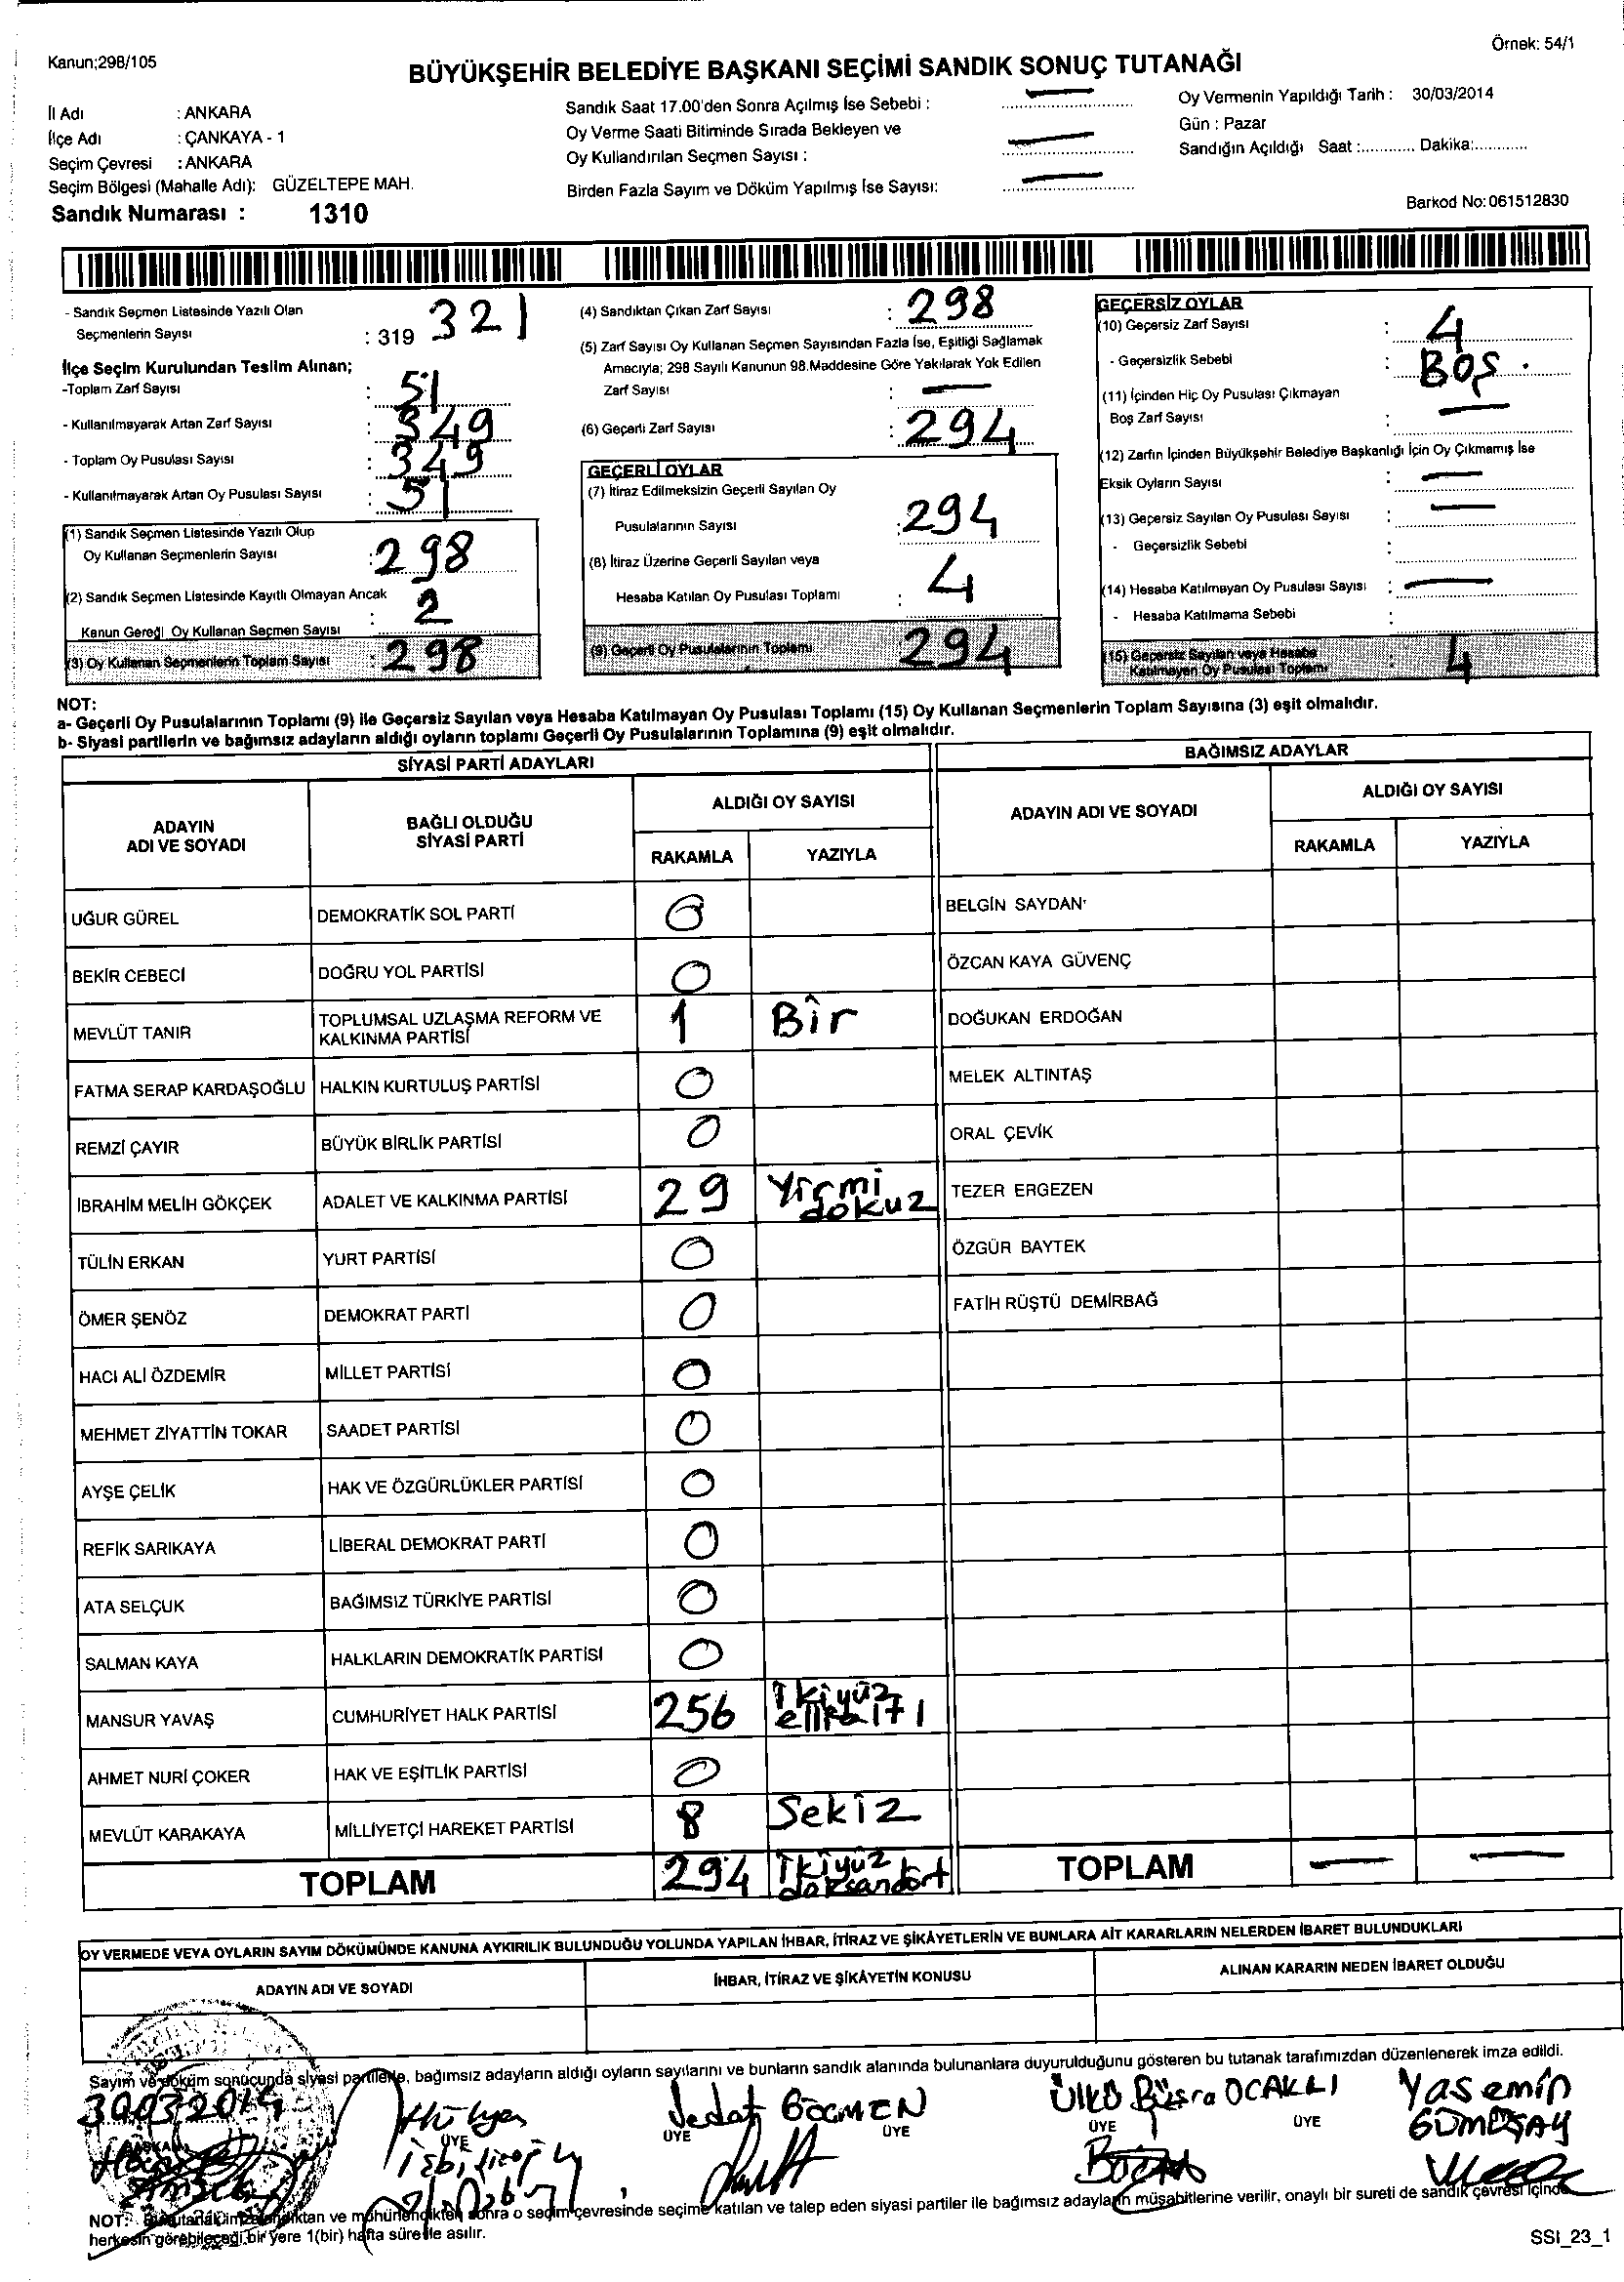 Kanun;298/105
Örnek: 54/1
BÜYÜKŞEHİR BELEDİYE BAŞKANI SEÇİMİ SANDIK SONUÇ TUTANAĞI
İl Adı : ANKARA
İlçe Adı : ÇANKAYA - 1
Seçim Çevresi : ANKARA
Seçim Bölgesi (Mahalle Adı): GÜZELTEPE MAH.
Sandık Numarası : 1310
Sandık Saat 17.00'den Sonra Açılmış İse Sebebi :
Oy Verme Saati Bitiminde Sırada Bekleyen ve
Oy Kullandırılan Seçmen Sayısı :
Birden Fazla Sayım ve Döküm Yapılmış İse Sayısı:
Oy Vermenin Yapıldığı Tarih : 30/03/2014
Gün : Pazar
Sandığın Açıldığı Saat :............ Dakika:............
Barkod No:061512830
- Sandık Seçmen Listesinde Yazılı Olan
Seçmenlerin Sayısı : 319 321
İlçe Seçim Kurulundan Teslim Alınan;
-Toplam Zarf Sayısı : 51
- Kullanılmayarak Artan Zarf Sayısı : 349
- Toplam Oy Pusulası Sayısı : 349
- Kullanılmayarak Artan Oy Pusulası Sayısı : 51
(1) Sandık Seçmen Listesinde Yazılı Olup
Oy Kullanan Seçmenlerin Sayısı : 298
(2) Sandık Seçmen Listesinde Kayıtlı Olmayan Ancak
Kanun Gereği Oy Kullanan Seçmen Sayısı : 2
(3) Oy Kullanan Seçmenlerin Toplam Sayısı : 298
(4) Sandıktan Çıkan Zarf Sayısı : 298
(5) Zarf Sayısı Oy Kullanan Seçmen Sayısından Fazla İse, Eşitliği Sağlamak
Amacıyla; 298 Sayılı Kanunun 98.Maddesine Göre Yakılarak Yok Edilen
Zarf Sayısı : —
(6) Geçerli Zarf Sayısı : 294
GEÇERLİ OYLAR
(7) İtiraz Edilmeksizin Geçerli Sayılan Oy
Pusulalarının Sayısı : 294
(8) İtiraz Üzerine Geçerli Sayılan veya
Hesaba Katılan Oy Pusulası Toplamı : 4
(9) Geçerli Oy Pusulalarının Toplamı 294
GEÇERSİZ OYLAR
(10) Geçersiz Zarf Sayısı : 4
- Geçersizlik Sebebi : BOŞ.
(11) İçinden Hiç Oy Pusulası Çıkmayan
Boş Zarf Sayısı : —
(12) Zarfın İçinden Büyükşehir Belediye Başkanlığı İçin Oy Çıkmamış İse
Eksik Oyların Sayısı : —
(13) Geçersiz Sayılan Oy Pusulası Sayısı : —
- Geçersizlik Sebebi :
(14) Hesaba Katılmayan Oy Pusulası Sayısı : —
- Hesaba Katılmama Sebebi :
(15) Geçersiz Sayılan veya Hesaba
Katılmayan Oy Pusulası Toplamı : 4
NOT:
a- Geçerli Oy Pusulalarının Toplamı (9) ile Geçersiz Sayılan veya Hesaba Katılmayan Oy Pusulası Toplamı (15) Oy Kullanan Seçmenlerin Toplam Sayısına (3) eşit olmalıdır.
b- Siyasi partilerin ve bağımsız adayların aldığı oyların toplamı Geçerli Oy Pusulalarının Toplamına (9) eşit olmalıdır.
SİYASİ PARTİ ADAYLARI
ADAYIN ADI VE SOYADI BAĞLI OLDUĞU SİYASİ PARTİ ALDIĞI OY SAYISI
RAKAMLA YAZIYLA
UĞUR GÜREL DEMOKRATİK SOL PARTİ 0
BEKİR CEBECİ DOĞRU YOL PARTİSİ 0
MEVLÜT TANIR TOPLUMSAL UZLAŞMA REFORM VE KALKINMA PARTİSİ 1 Bir
FATMA SERAP KARDAŞOĞLU HALKIN KURTULUŞ PARTİSİ 0
REMZİ ÇAYIR BÜYÜK BİRLİK PARTİSİ 0
İBRAHİM MELİH GÖKÇEK ADALET VE KALKINMA PARTİSİ 29 Yirmi dokuz
TÜLİN ERKAN YURT PARTİSİ 0
ÖMER ŞENÖZ DEMOKRAT PARTİ 0
HACI ALİ ÖZDEMİR MİLLET PARTİSİ 0
MEHMET ZİYATTİN TOKAR SAADET PARTİSİ 0
AYŞE ÇELİK HAK VE ÖZGÜRLÜKLER PARTİSİ 0
REFİK SARIKAYA LİBERAL DEMOKRAT PARTİ 0
ATA SELÇUK BAĞIMSIZ TÜRKİYE PARTİSİ 0
SALMAN KAYA HALKLARIN DEMOKRATİK PARTİSİ 0
MANSUR YAVAŞ CUMHURİYET HALK PARTİSİ 256 İkiyüz ellialtı
AHMET NURİ ÇOKER HAK VE EŞİTLİK PARTİSİ 0
MEVLÜT KARAKAYA MİLLİYETÇİ HAREKET PARTİSİ 8 Sekiz
TOPLAM 294 İkiyüz doksandört
BAĞIMSIZ ADAYLAR
ADAYIN ADI VE SOYADI ALDIĞI OY SAYISI
RAKAMLA YAZIYLA
BELGİN SAYDAN
ÖZCAN KAYA GÜVENÇ
DOĞUKAN ERDOĞAN
MELEK ALTINTAŞ
ORAL ÇEVİK
TEZER ERGEZEN
ÖZGÜR BAYTEK
FATİH RÜŞTÜ DEMİRBAĞ
TOPLAM — —
OY VERMEDE VEYA OYLARIN SAYIM DÖKÜMÜNDE KANUNA AYKIRILIK BULUNDUĞU YOLUNDA YAPILAN İHBAR, İTİRAZ VE ŞİKÂYETLERİN VE BUNLARA AİT KARARLARIN NELERDEN İBARET BULUNDUKLARI
ADAYIN ADI VE SOYADI İHBAR, İTİRAZ VE ŞİKÂYETİN KONUSU ALINAN KARARIN NEDEN İBARET OLDUĞU
Sayım ve döküm sonucunda siyasi partilerle, bağımsız adayların aldığı oyların sayılarını ve bunların sandık alanında bulunanlara duyurulduğunu gösteren bu tutanak tarafımızdan düzenlenerek imza edildi.
30032014 Hülya Vedat GÖÇMEN ÜLKÜ Büşra OCAKLI Yasemin
BAŞKAN ÜYE ÜYE ÜYE ÜYE ÜYE GÜMÜŞAY
NOT: Bu tutanak imzalandıktan ve mühürlendikten sonra o seçim çevresinde seçime katılan ve talep eden siyasi partiler ile bağımsız adayların müşahitlerine verilir, onaylı bir sureti de sandık çevresi içinde
herkesin görebileceği bir yere 1(bir) hafta süre ile asılır.
SSI_23_1